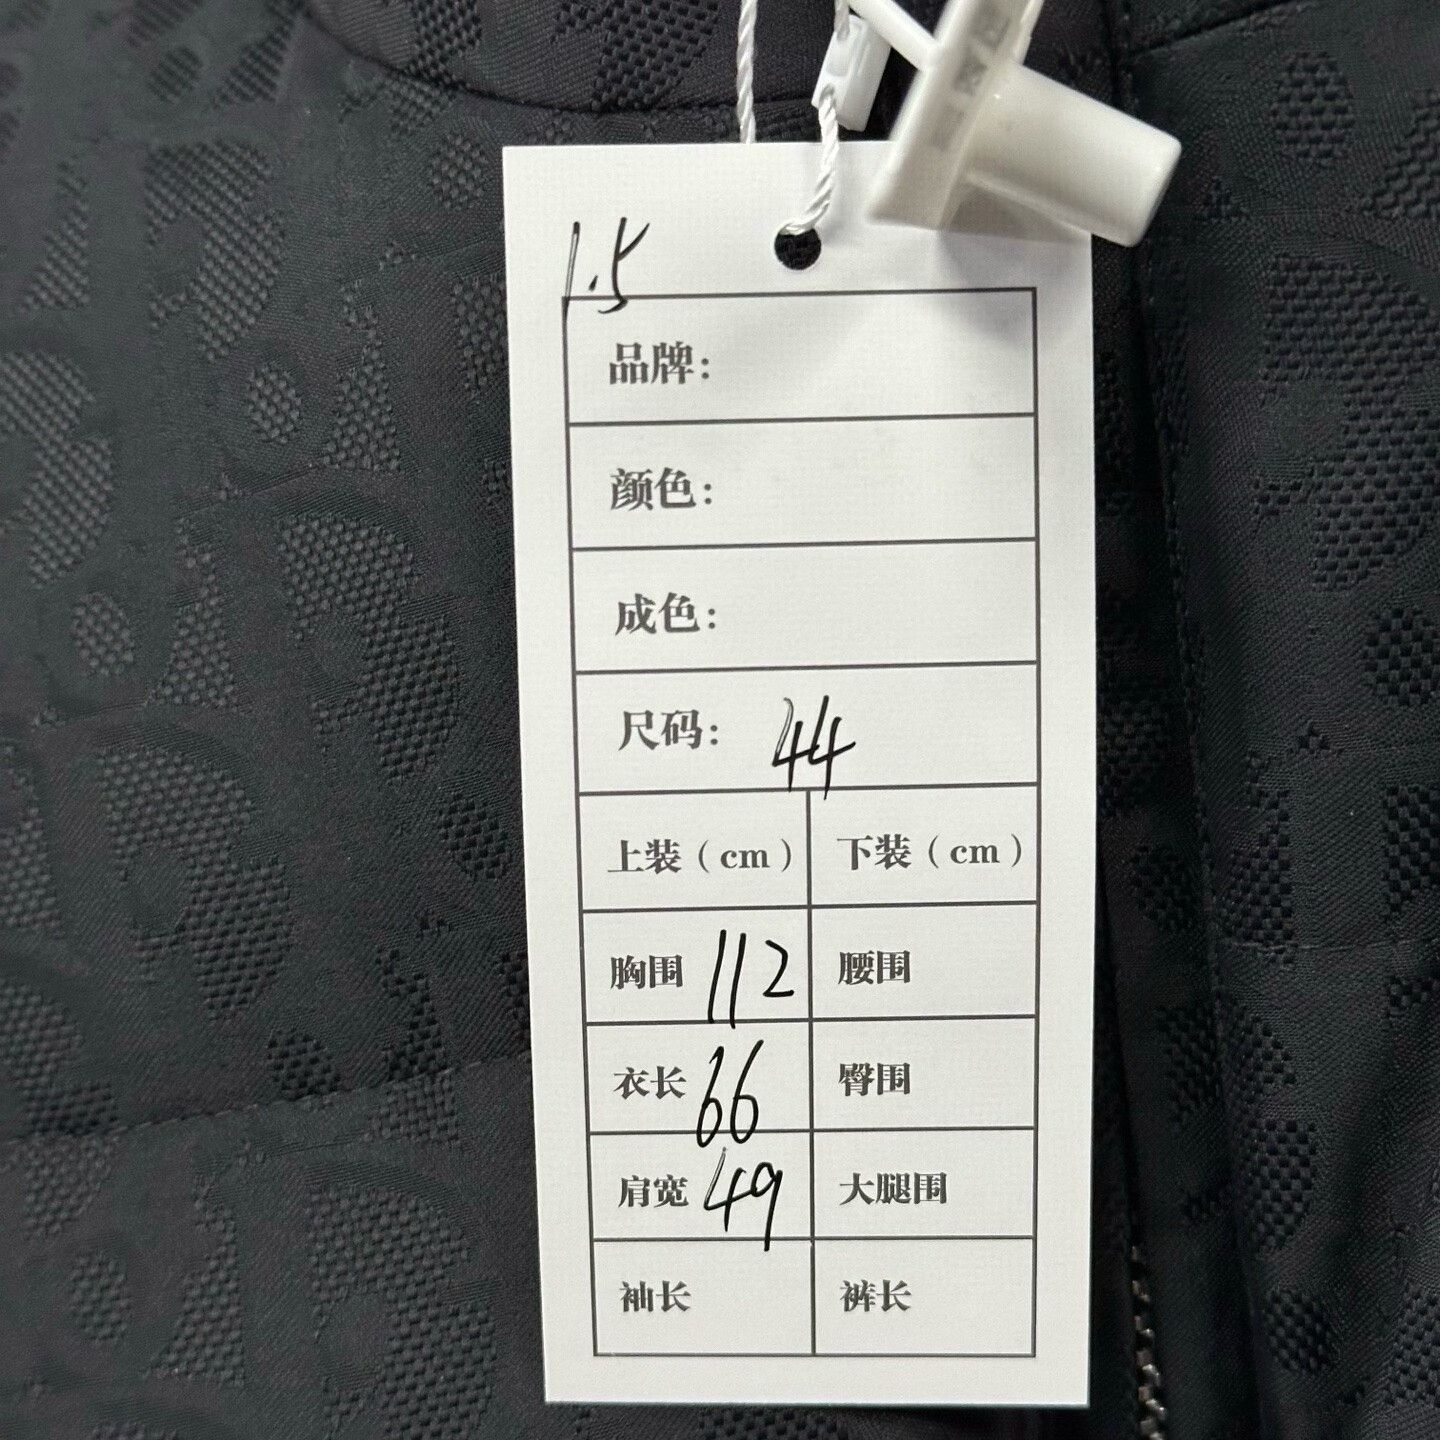 1.5
品牌：
颜色：
成色：
尺码： 44
上装（cm） 下装（cm）
胸围 112 腰围
衣长 66 臀围
肩宽 49 大腿围
袖长 裤长